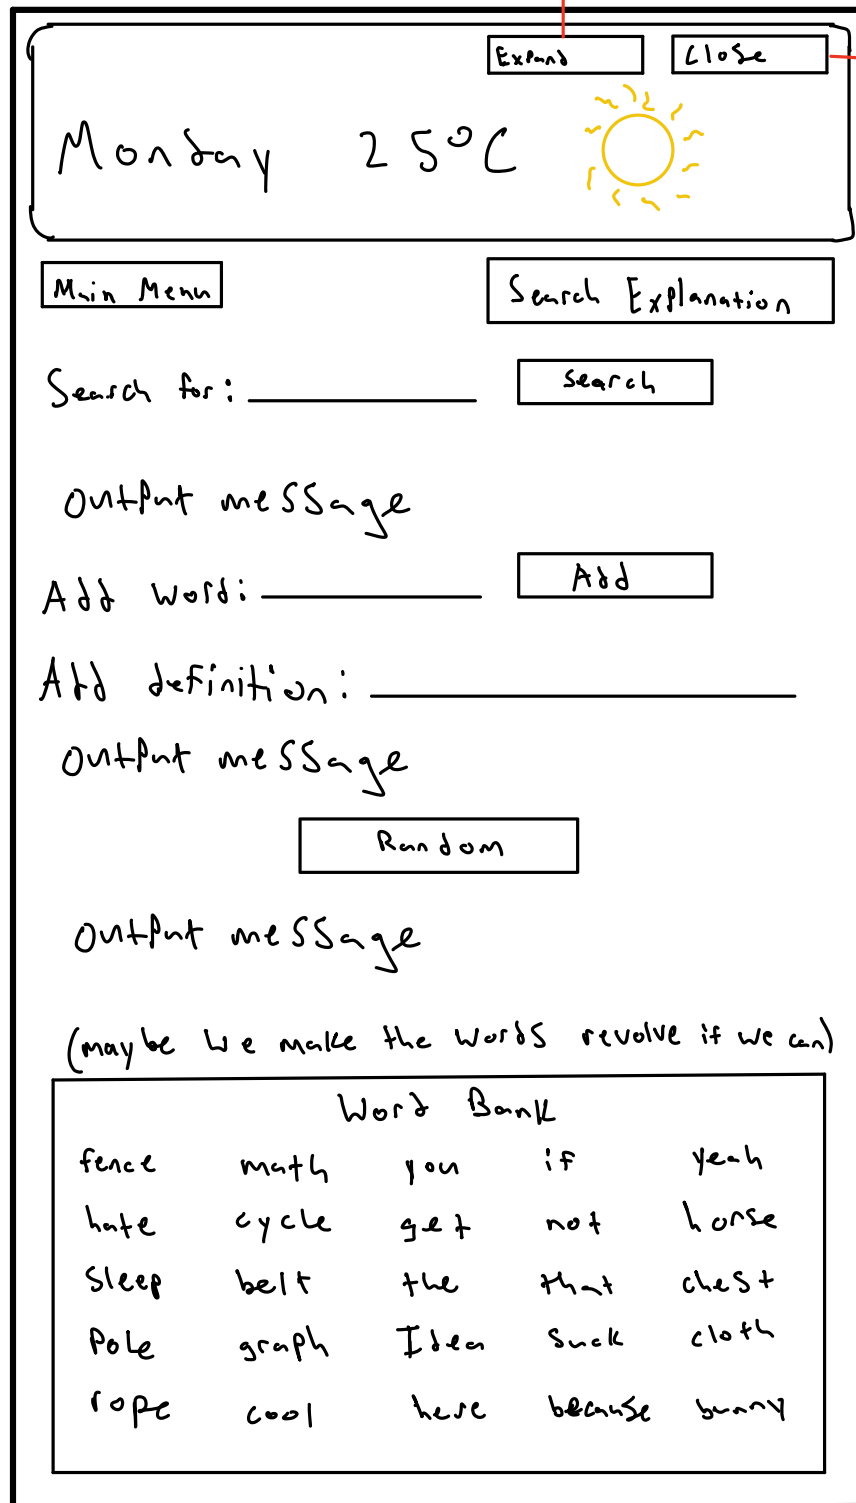 Expand Close
Monday 25°C
Main Menu Search Explanation
Search for: Search
Output message
Add word: Add
Add definition:
Output message
Random
Output message
(maybe we make the words revolve if we can)
Word Bank
fence math you if yeah
hate cycle get not horse
Sleep belt the that chest
Pole graph Idea Suck cloth
rope cool here because bunny